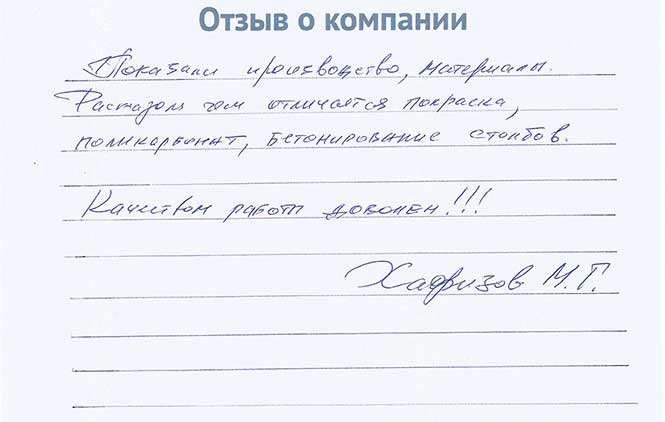 Отзыв о компании
Показали производство, материалы.
Расказали чем отличается покраска,
поликарбонат, бетонирование столбов.
Качеством работ доволен!!!
Хафизов М.Г.